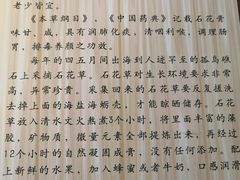 老少皆宜。
《本草纲目》，《中国药典》记载石花膏
味甘、咸，具有润肺化痰，清咽利喉，调理肠
胃，排毒养颜之功效。
每年的四五月间出海到人迹罕至的孤岛礁
石上采摘石花草。石花草对生长环境要求非常
高，异常珍贵。采来的石花草要反复搓洗
去掉上面的海盐海蛎壳，才能晾晒储存。石花
草放入清水文火熬煮3个小时，将里面丰富的藻
胶，矿物质，微量元素全部提炼出来，再经过
12个小时的自然凝固成膏，没有任何添加。配
上新鲜的水果，加入蜂蜜或者牛奶，口感润滑